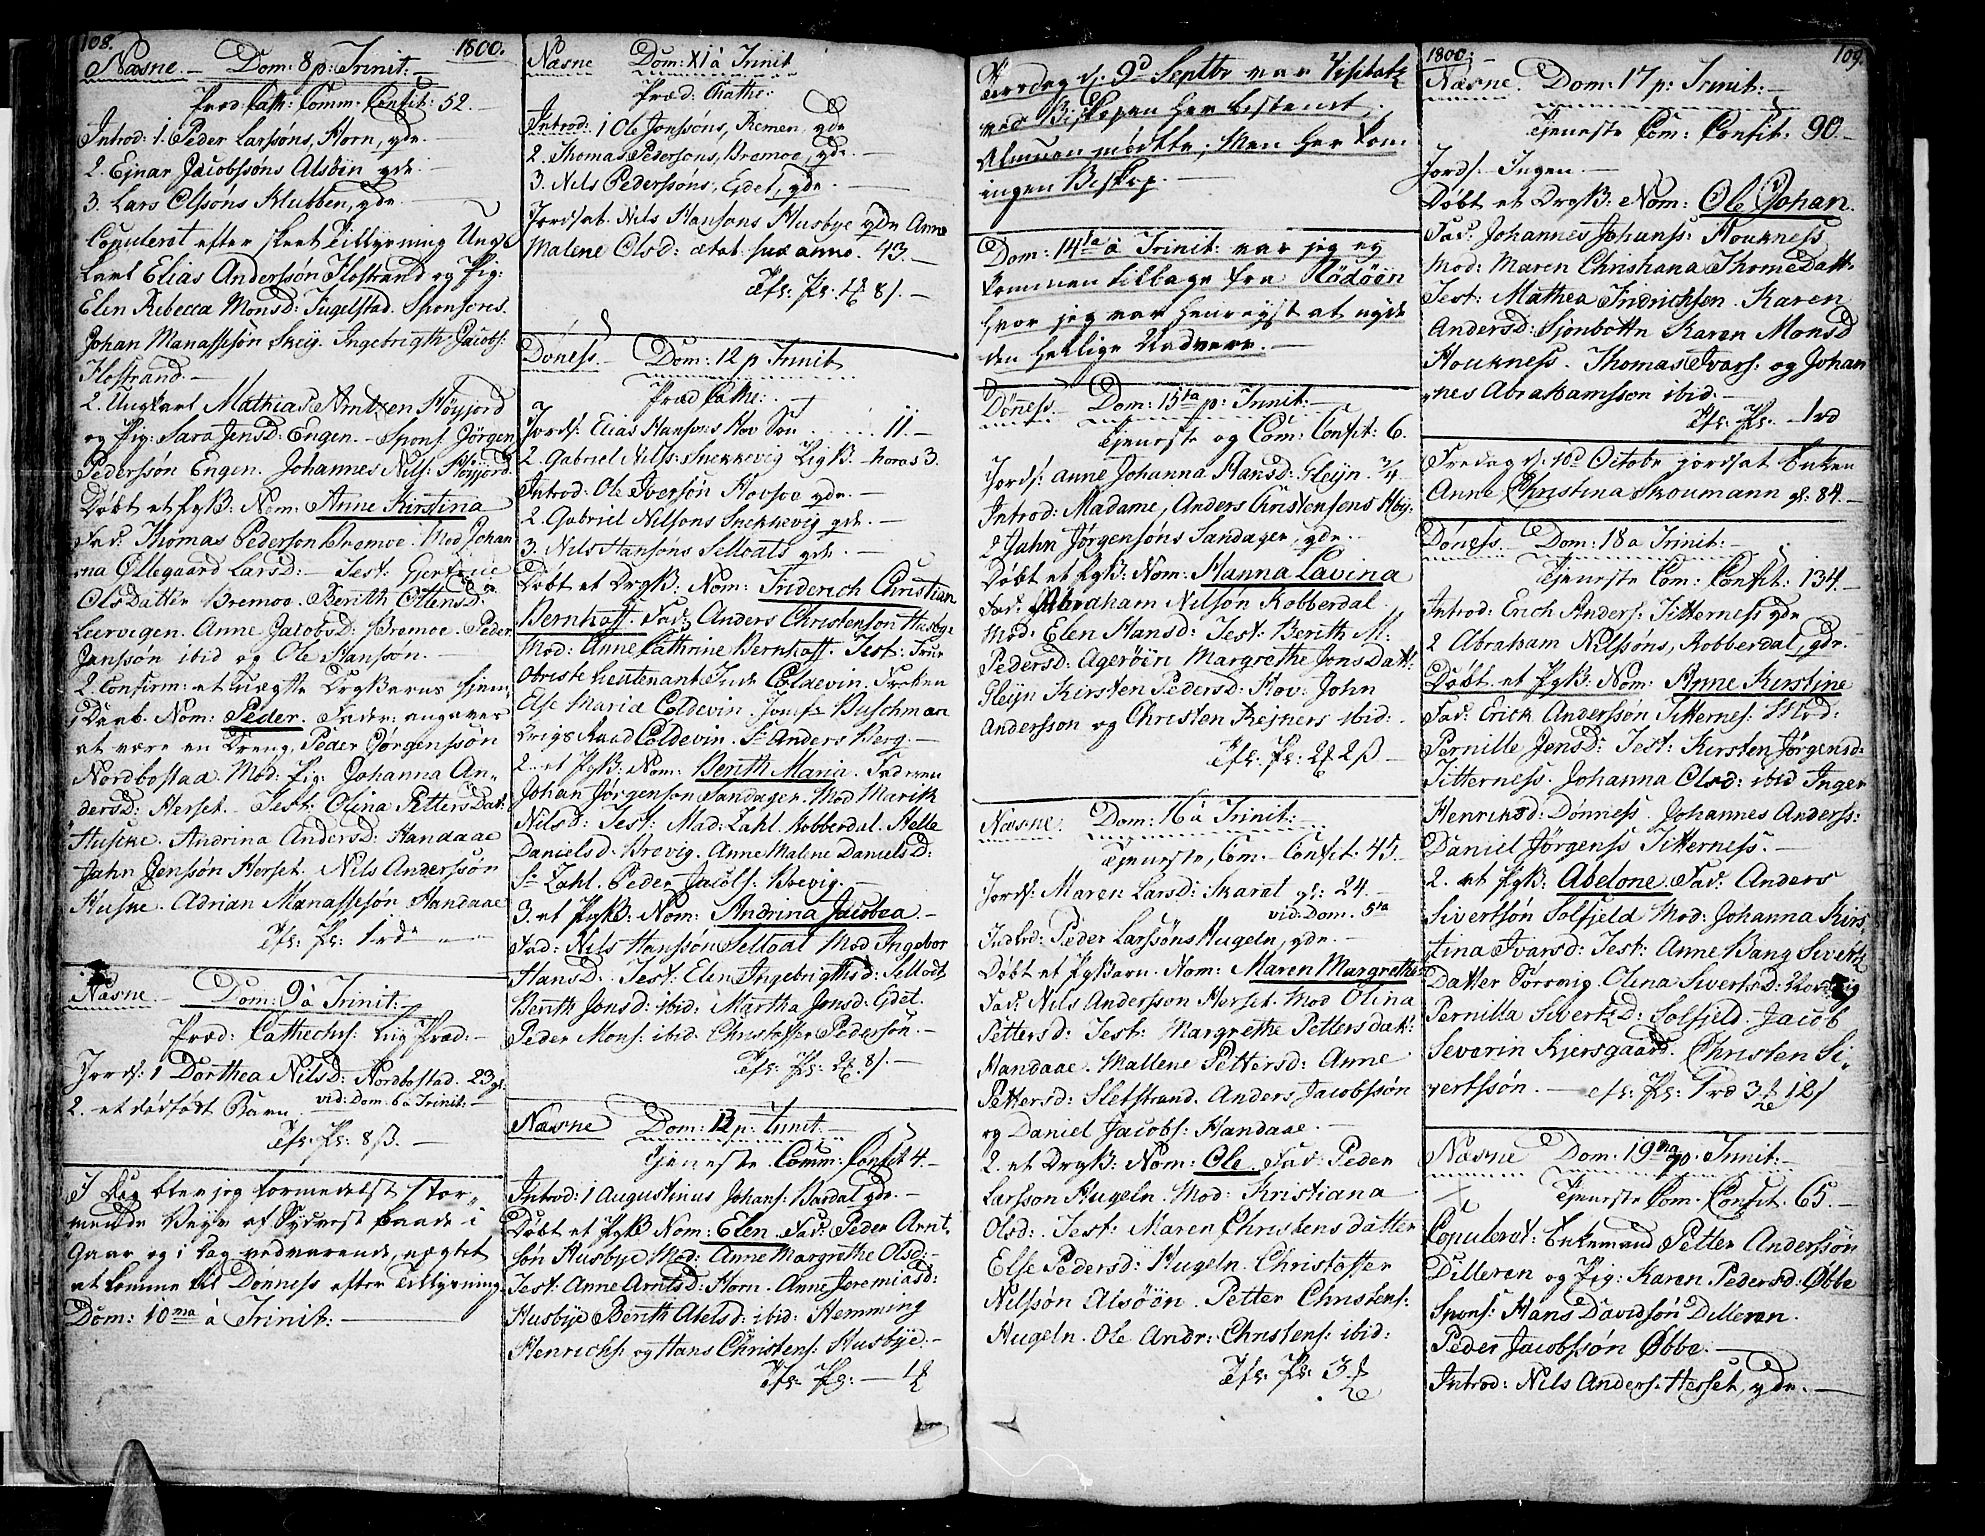 108.
1800.
Næsne. — Dom: 8 p: Trinit: —
Præd: Cath: Comm: Confit: 52. —
Introd: 1. Peder Larssøns, Horn, gde. —
2. Ejnar Jacobssøns Alsöen gde. —
3. Lars Olssøns Klubben, gde —
Copuleret efter skeet Tillysning Ung-
karl Elias Anderssøn Flostrand og Pig:
Elen Rebecca Monsd: Fugelstad. Sponsores.
Johan Manassesøn Skey. Ingebrigth Jacobs:
Flostrand. —
2. Ungkarl Mathias Arntzen Høyjord
og Pig: Sara Jensd: Engen. — Spons: Jørgen
Pederssøn Engen. Johannes Nils: Høyjord.
Døbt et PgB: Nom: Anne Kirstina
Fad: Thomas Pederson Bremoe. Mod Johan
na Øllegaard Larsd: — Test: Gjertrue
Olsdatter Bremoe. Berith Ottensd:
Leervigen. Anne Jacobsd: Bremoe. Peder
Janssøn ibid og Ole Hansson. —
2. Confirm: et uægte DrgBarns hjem-
Daab. Nom: Peder. Fader: angaves
at være en Dreng, Peder Jørgenssøn
Nordbostaa Mod: Pig: Johanna An-
dersd: Herset — Test: Olina Petters Dat:
Huske. Andrina Andersd: Handaae
Jahn Jenssøn Herset. Nils Anderssøn
Huske. Adrian Manassesøn Handaae
Tfl: Ps: 1 rd —
Næsne — Dom: 9 à Trinit: —
Præd: Cathechs: Liig Præd: —
Jords: 1 Dorthea Nilsd: Nordbostad. 23 gl:
2. et dødfødt Barn. vid: Dom. 6 à Trinit: —
Tfl: Ps: 8 ß. —
I Dag blev jeg formedelst stor-
mende Vejr af Sydvest baade i
Gaar og i Dag vedvarende, nægtet
at komme til Dønness efter Tillysning
Dom: 10ma à Trinit: —
Næsne Dom: XI à Trinit
Præd: Cathe:
Introd: 1 Ole Jonssøns, Remen, gde
2. Thomas Pedersøns, Bremoe, gde. —
3. Nils Pederssøns, Edet, gde. —
Jordsat. Nils Hansøns Husbye gde Anne
Malene Olsd: ætat: suæ anno. 43. —
Tfl: Ps: 8 ß. —
Døness. — Dom: 12 p Trinit
Præd Cathe: —
Jords: Elias Hansøns Hov Søn . . . 11. —
2. Gabriel Nilss: Snekkevig PigB: — horas 3.
Introd: Ole Iversøn Hovsoe gde. —
2. Gabriel Nilsøns Snekkevig gde. —
3. Nils Hansøns Selvaat gde. —
Døbt et DrgB: Nom: Friderich Christian
Bernhoft. Fad: Anders Christenson Husbye
Mod: Anne Cathrine Bernhoft. Test: Frue
Obriste Lieutenant Coldevin. Frøken
Else Maria Coldevin. Jomfr Buschman
Krigs Raad Coldevin. Sr Anders Berg. —
2. et PgB: Nom: Berith Maria. Faderen
Johan Jørgenson Sandager. Mod Marith
Nilsd: Test: Mad: Zahl. Kobberdal. Helle
Danielsd. Brevig. Anne Malene Daniels D:
Sr Zahl. Peder Jacobs: Brevig. —
3. et PgB: Nom: Andrina Jacobea. —
Fad: Nils Hanssøn Selvaat Mod Ingebor
Hansd. Test: Elen Ingebrigthsd: Selvat
Berith Jonsd: ibid: Martha Jonsd: Edet.
Peder Mons: ibid. Christoffer Pedersøn. —
Tfl: Ps: 2 8 ß. —
Næsne Dom: 13 p: Trinit. —
Tjeneste Comm: Confit 4. —
Introd: 1 Augustinus Johans: Bardal gde. —
Døbt et PgB Nom: Elen. Fad: Peder Arnt-
søn Husbye Mod: Anne Margrethe Olsd: —
Test: Anne Arntsd: Horn. Anne Jeremiasd:
Husbye Berith Axelsd: ibid: Hemming
Henrichs: og Hans Christens: Husbye. —
Tfl: Ps: — 1
Tiersdag d: 9d Septbr var Visitatz
ved Biskopen her bestemt,
Almuen mødtte; Men her kom
ingen Biskop. —
Dom: 14ta à Trinit: var jeg ey
kommen tilbage fra Rödöen
hvor jeg var henreyst at nyde
den Hellige Nadvere. —
Døness. Dom: 15ta p: Trinit: —
Tjeneste og Com: Confit: 6.
Jords: Anne Johanna Hansd: Glejn. 3/4
Introd: Madame, Anders Christensens Hby:
2 Jahn Jørgensøns Sandager, gde. —
Døbt et PgB: Nom: Hanna Lavina
Fad: Abraham Nilsøn Kobberdal
Mod: Elen Hansd: Test: Berith M:
Pedersd: Agerøen Margrethe Jons Dat:
Glejn Kirsten Pedersd: Hov: John
Andersson og Christen Rejners ibid:
Tfl: Ps: 2 2 ß —
Næsne. Dom: 16 à Trinit: —
Tjeneste, Com: Confit: 45.
Jords: Maren Larsd: Skaret gl: 24. —
vid: Dom. 5ta
Introd: Peder Larssøns Hugeln, gde. —
Døbt et PgBarn. Nom: Maren Margrethe
Fad: Nils Andersson Herset. Mod Olina
Pettersd: Test: Margrethe Petters dat:
Handaae. Mallene Pettersd: Anne
Pettersd: Sletstrand. Anders Jacobssøn
og Daniel Jacobs: Handaae. —
2. et DrgB: Nom: Ole. Fad: Peder
Larsson Hugeln. Mod: Kristiana
Olsd: Test: Maren Christens datter
Else Pedersd: Hugeln. Christoffer
Nilssøn Alsöen. Petter Christens:
Hugeln. Ole Andr: Christens: ibid:
Tfl: Ps: 3
1800.
109.
Næsne. Dom: 17 p: Trinit: —
Tjeneste Com: Confit: 90 —
Jords: Ingen —
Døbt et DrgB: Nom: Ole Johan.
Fad: Johannes Johanss: Houkness
Mod: Maren Christiana Thome Datt:
Test: Mathea Fridrichsen. Karen
Andersd: Sjonbottn Karen Monsd
Houkness. Thomas Ivars: og Johan
nes Abrahamsson ibid: —
Tfl: Ps: — 1 rd
Fredag d: 10d Octobr jordsat Enken
Anne Christina Skoumann gl: 84. —
Døness Dom: 18 à Trinit: —
Tjeneste Com: Confit: 134. —
Introd: Erich Anders: Titterness gde
2 Abraham Nilssøns, Kobberdal, gde.
Døbt et PgB: Nom: Anne Kirstine
Fad: Erick Anderssøn Titternes: Mod:
Pernille Jensd: Test: Kirsten Jørgensd:
Titterness. Johanna Olsd: ibid Inger
Henriksd: Dønness. Johannes Anderss:
Daniel Jørgenss Titterness. —
2. et PgB: Abelone. Fad: Anders
Sivertsøn Solfjeld Mod: Johanna Kirs-
tina Ivarsd: Test: Anne Bang Sivertz
Datter Forsvig. Olina Sivertsd:
Pernilla Sivertz D: Solfjeld. Jacob
Severin Kjersgaard. Christen Si-
vertssøn. — Tfl: Ps: 1 rd 3 12 ß
Næsne Dom: 19na p. Trinit: —
Tjeneste Com: Confit. 65. —
Copuleret: Enkemand Petter Anderssøn
Dilleren og Pig: Karen Pedersd: Øbbe
Spons: Hans Davidsøn Dilleren.
Peder Jacobssøn Øbbe. —
Introd: Nils Anders: Hersset, gde. —